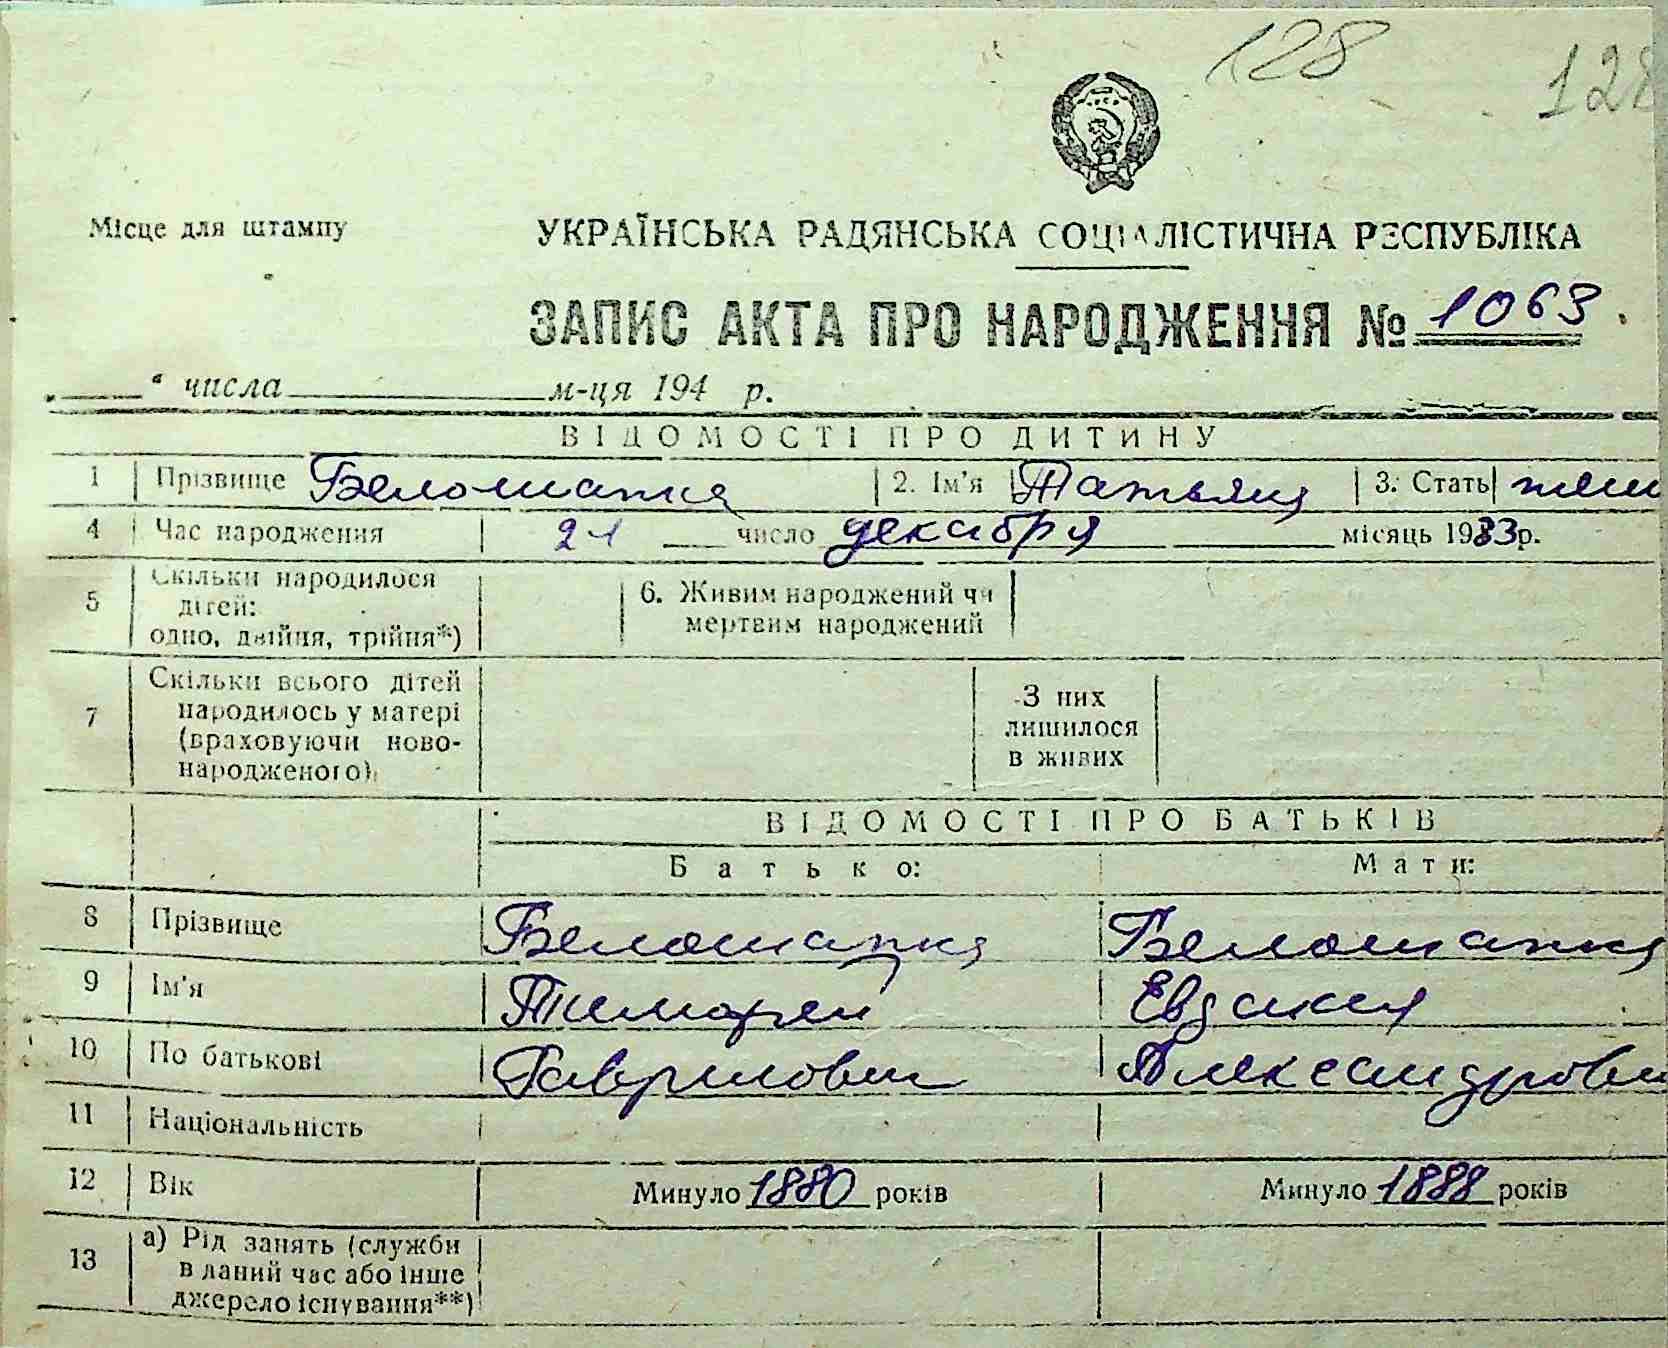 128
128
Місце для штампу
УКРАЇНСЬКА РАДЯНСЬКА СОЦІАЛІСТИЧНА РЕСПУБЛІКА
ЗАПИС АКТА ПРО НАРОДЖЕННЯ № 1063
„ “ числа м-ця 194 р.
ВІДОМОСТІ ПРО ДИТИНУ
1 Прізвище Белошапка 2. Ім'я Татьяна 3. Стать жен
4 Час народження 21 число декабря місяць 1933р.
5 Скільки народилося
дітей:
одно, двійня, трійня*)
6. Живим народжений чи
мертвим народжений
7 Скільки всього дітей
народилось у матері
(враховуючи ново-
народженого)
З них
лишилося
в живих
ВІДОМОСТІ ПРО БАТЬКІВ
Батько: Мати:
8 Прізвище Белошапка Белошапка
9 Ім'я Тимофей Евдокия
10 По батькові Гаврилович Александровн
11 Національність
12 Вік Минуло 1880 років Минуло 1888 років
13 а) Рід занять (служби
в даний час або інше
джерело існування**)